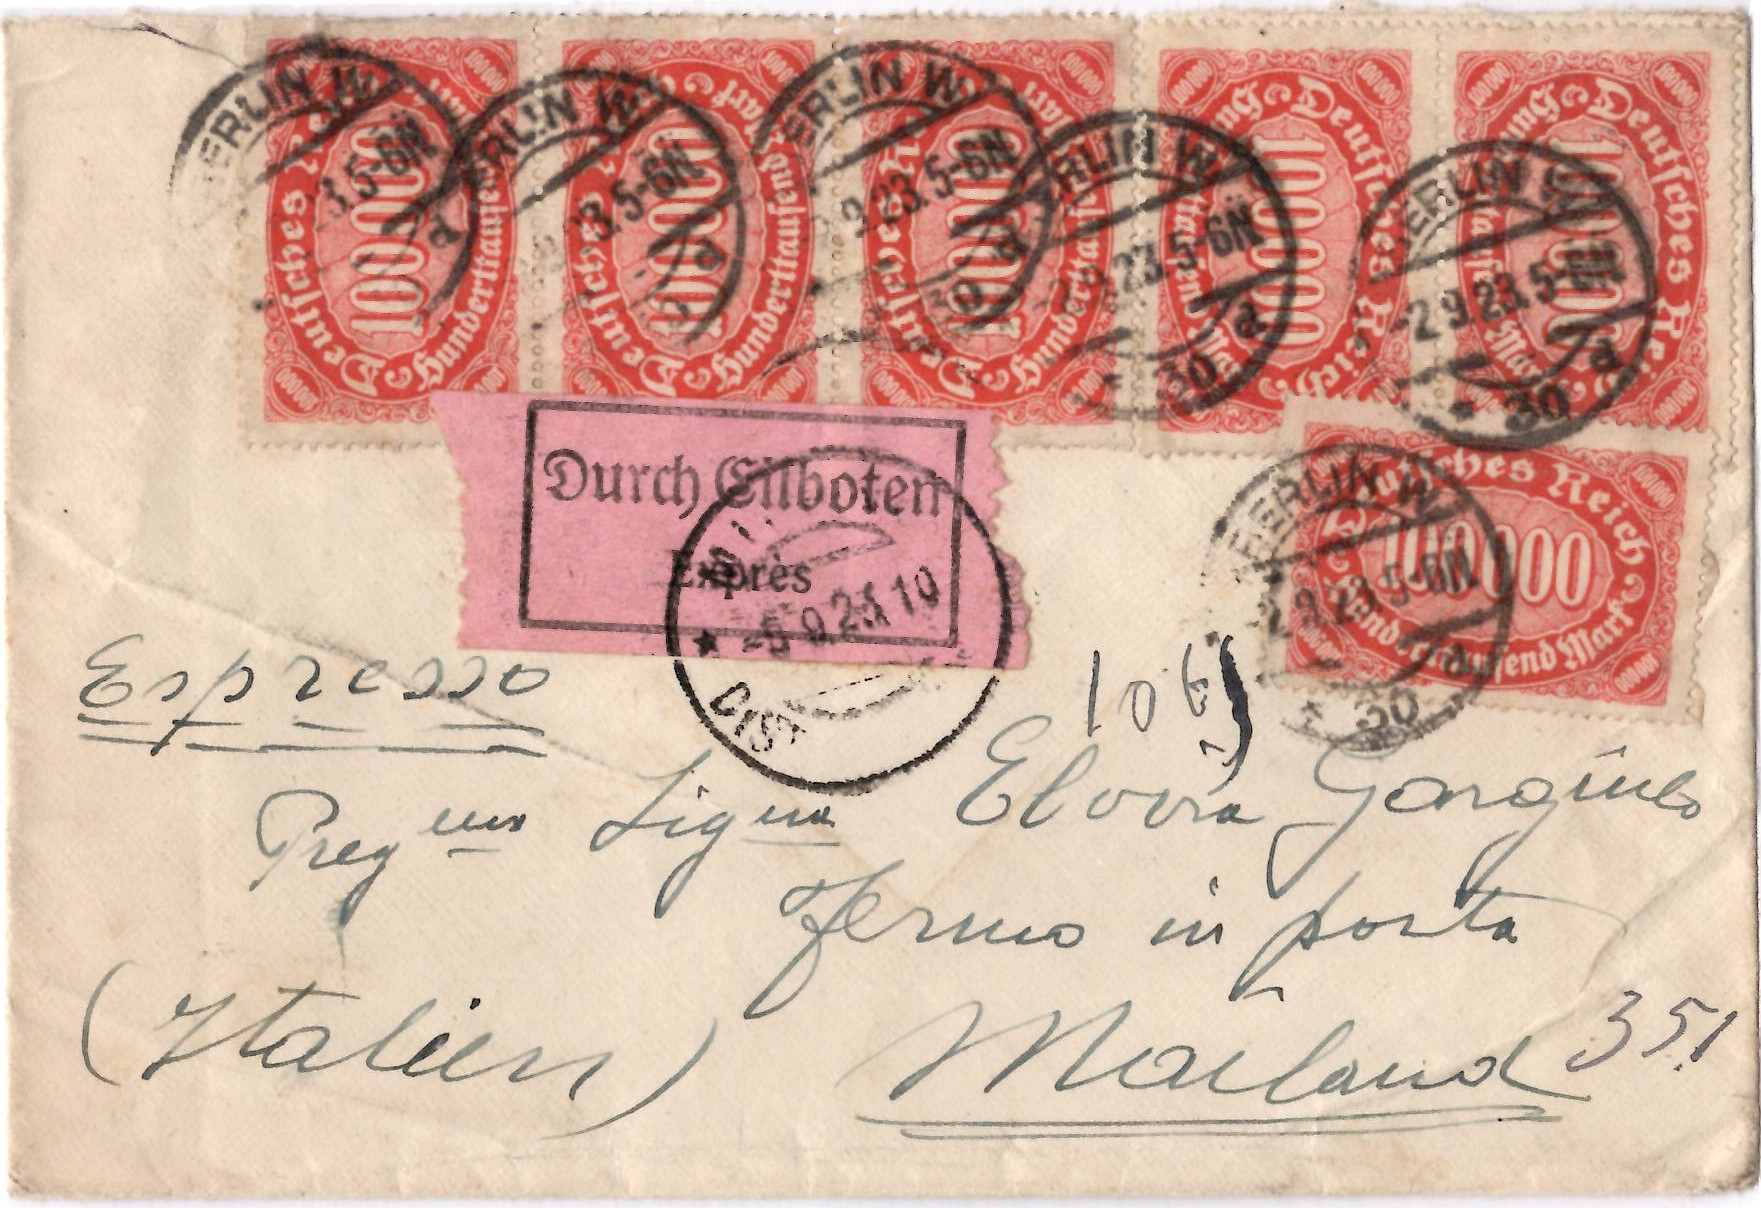 Deutsches Reich 100000 Hunderttausend Mark
Deutsches Reich 100000 Hunderttausend Mark
Deutsches Reich 100000 Hunderttausend Mark
Deutsches Reich 100000 Hunderttausend Mark
Deutsches Reich 100000 Hunderttausend Mark
BERLIN W 3.5-6N a
BERLIN W 23.5-6N a
BERLIN W .9.23.5-6N a 30
BERLIN W 2.9.23.5-6N a * 30
BERLIN W -2.9.23.5-6N a * 30
Deutsches Reich 100000 Hunderttausend Mark
BERLIN W -2.9.23.5-6N a * 30
Durch Eilboten
Exprès
MIL * -5.9.23 10 DIST
Espresso
106
Preg ma Sig na Elvira
fermo in posta
(Italien) Mailand 351